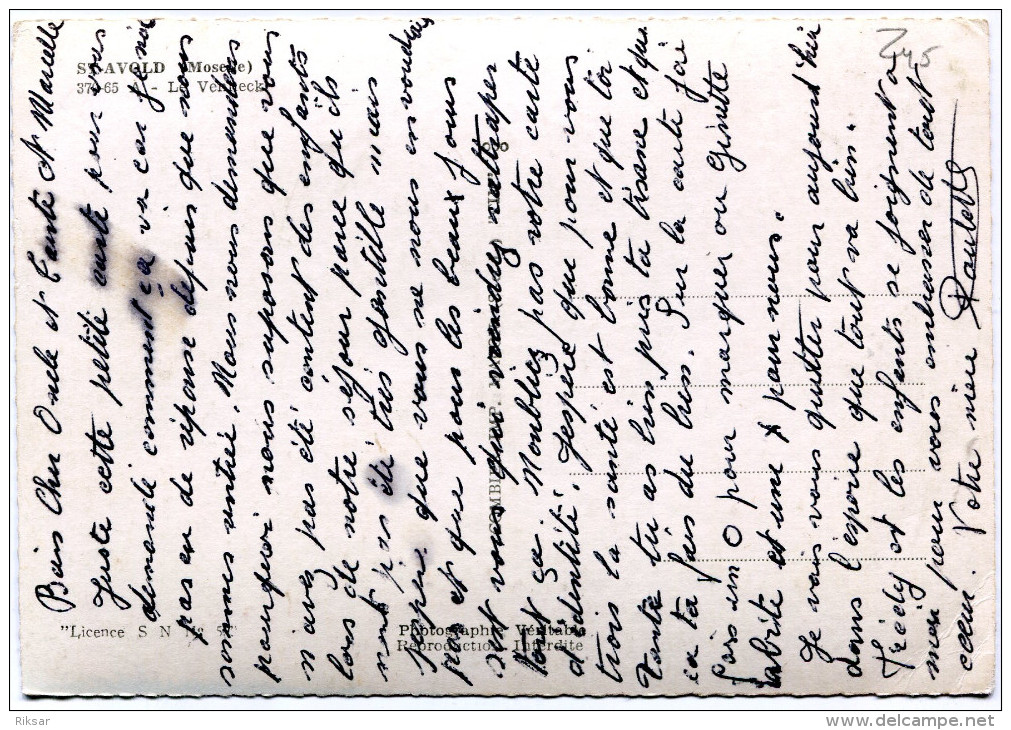 ST-AVOLD (Moselle)
370-65 A - Le
"Licence S N No
Photographie Véritable
Reproduction Interdite
COMBIER
Cher Oncle et Tante et Marcelle
Juste cette petite carte pour vous
demandé comment ça va car j'ai
pas eu de réponse depuis que nous
sommes rentré. Nous nous demandons
pourquoi nous suposons que vous
n avez pas été content des enfants
lors de notre séjour parce qu'ils
n'ont pas été très gentille mais
j'espère que vous ne nous en voudrais
pas et que pour les beaux jours
vous viendrez rattraper
tout ça. N'oubliez pas votre carte
d'identité. J'espère que pour vous
trois la santé est bonne et que toi
Tante tu as bien pris ta tisane et que
ça ta fais du bien. Sur la carte j'ai
fais un O pour marquer ou Ginette
abrite et une x pour nous.
Je vais vous quitter pour aujourd'hui
dans l'espoir que tout va bien.
et les enfants se joignent a
moi pour vous embrasser de tout
coeur. Votre nièce Paulette
Riksar
www.delcampe.net